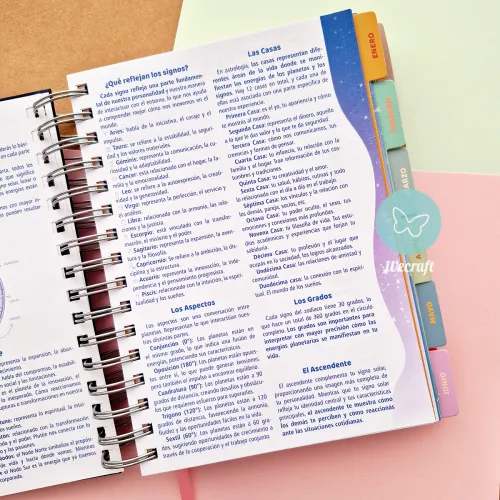 ¿Qué reflejan los signos?
Cada signo refleja una parte fundamen-
tal de nuestra personalidad y nuestra manera
de interactuar con el entorno, lo que nos ayuda
a comprender mejor cómo nos movemos en el
mundo.
Aries: habla de la iniciativa, el coraje y el
impulso.
Tauro: se refiere a la estabilidad, la seguri-
dad y los valores materiales.
Géminis: representa la comunicación, la cu-
riosidad y la adaptabilidad.
Cáncer: está relacionado con el hogar, la fa-
milia y la emocionalidad.
Leo: se refiere a la autoexpresión, la creati-
vidad y la generosidad.
Virgo: representa la perfección, el servicio y
el análisis.
Libra: relacionado con la armonía, las rela-
ciones y la justicia.
Escorpio: está vinculado con la transfor-
mación, el misterio y el poder.
Sagitario: representa la expansión, la aven-
tura y la filosofía.
Capricornio: Se refiere a la ambición, la dis-
ciplina y la estructura.
Acuario: representa la innovación, la inde-
pendencia y el pensamiento progresista.
Piscis: relacionado con la intuición, la espiri-
tualidad y los sueños.
Los Aspectos
Los aspectos son una conversación entre
planetas. Representan lo que interactúan nues-
tras distintas partes.
Conjunción (0°): Los planetas están en
el mismo grado, lo que indica una fusión de
energías, potenciando sus características.
Oposición (180°): Los planetas están opues-
tos entre sí, lo que puede generar tensiones,
pero también equilibrio si se encuentra armonía.
Cuadratura (90°): Los planetas están a 90
grados de distancia, creando desafíos y obstácu-
los que requieren esfuerzo para superarlos.
Trígono (120°): Los planetas están a 120
grados de distancia, favoreciendo la armonía,
fluidez y las oportunidades fáciles en la vida.
Sextil (60°): Los planetas están a 60 gra-
dos, sugiriendo oportunidades de crecimiento a
través de la cooperación y el trabajo conjunto
Las Casas
En astrología, las casas representan dife-
rentes áreas de la vida donde se mani-
fiestan las energías de los planetas y los
signos. Hay 12 casas en total, y cada una de
ellas está asociada con una parte específica de
nuestra experiencia.
Primera Casa: es el yo, tu apariencia y cómo
te muestras al mundo.
Segunda Casa: representa el dinero, aquello
a lo que le das valor y lo que te da seguridad.
Tercera Casa: cómo nos comunicamos, tus
creencias y formas de pensar.
Cuarta Casa: tu infancia, tu relación con la
familia y el hogar. Trae información de tus con-
ductas y tradiciones.
Quinta Casa: tu creatividad y el amor.
Sexta Casa: tu salud, hábitos, rutinas y todo
lo relacionado con el día a día en el trabajo.
Séptima Casa: los vínculos y la relación con
los demás, parejas, socios, etc.
Octava Casa: tu poder oculto, el sexo, tus
emociones y conexiones más profundas.
Novena Casa: tu filosofía de vida. Tus estu-
dios académicos y experiencias que forjan tu
sabiduría.
Décima Casa: tu profesión y el lugar que
ocupás en la sociedad, los logros alcanzados.
Undécima Casa: las relaciones de amistad y
comunidad.
Duodécima Casa: la conexión con lo espiri-
tual. El mundo de los sueños.
Los Grados
Cada signo del zodíaco tiene 30 grados, lo
que hace un total de 360 grados en el círculo
completo. Los grados son importantes para
interpretar con mayor precisión cómo las
energías planetarias se manifiestan en tu
vida.
El Ascendente
El ascendente complementa tu signo solar,
proporcionando una imagen más compleja de
tu personalidad. Mientras que tu signo solar
refleja tu identidad central y tus características
principales, el ascendente te muestra cómo
los demás te perciben y cómo reaccionás
ante las situaciones cotidianas.
ENERO
FEBRERO
MARZO
MAYO
JUNIO
Wecraft